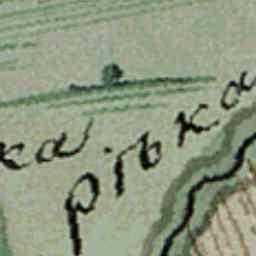 ка
рѣка